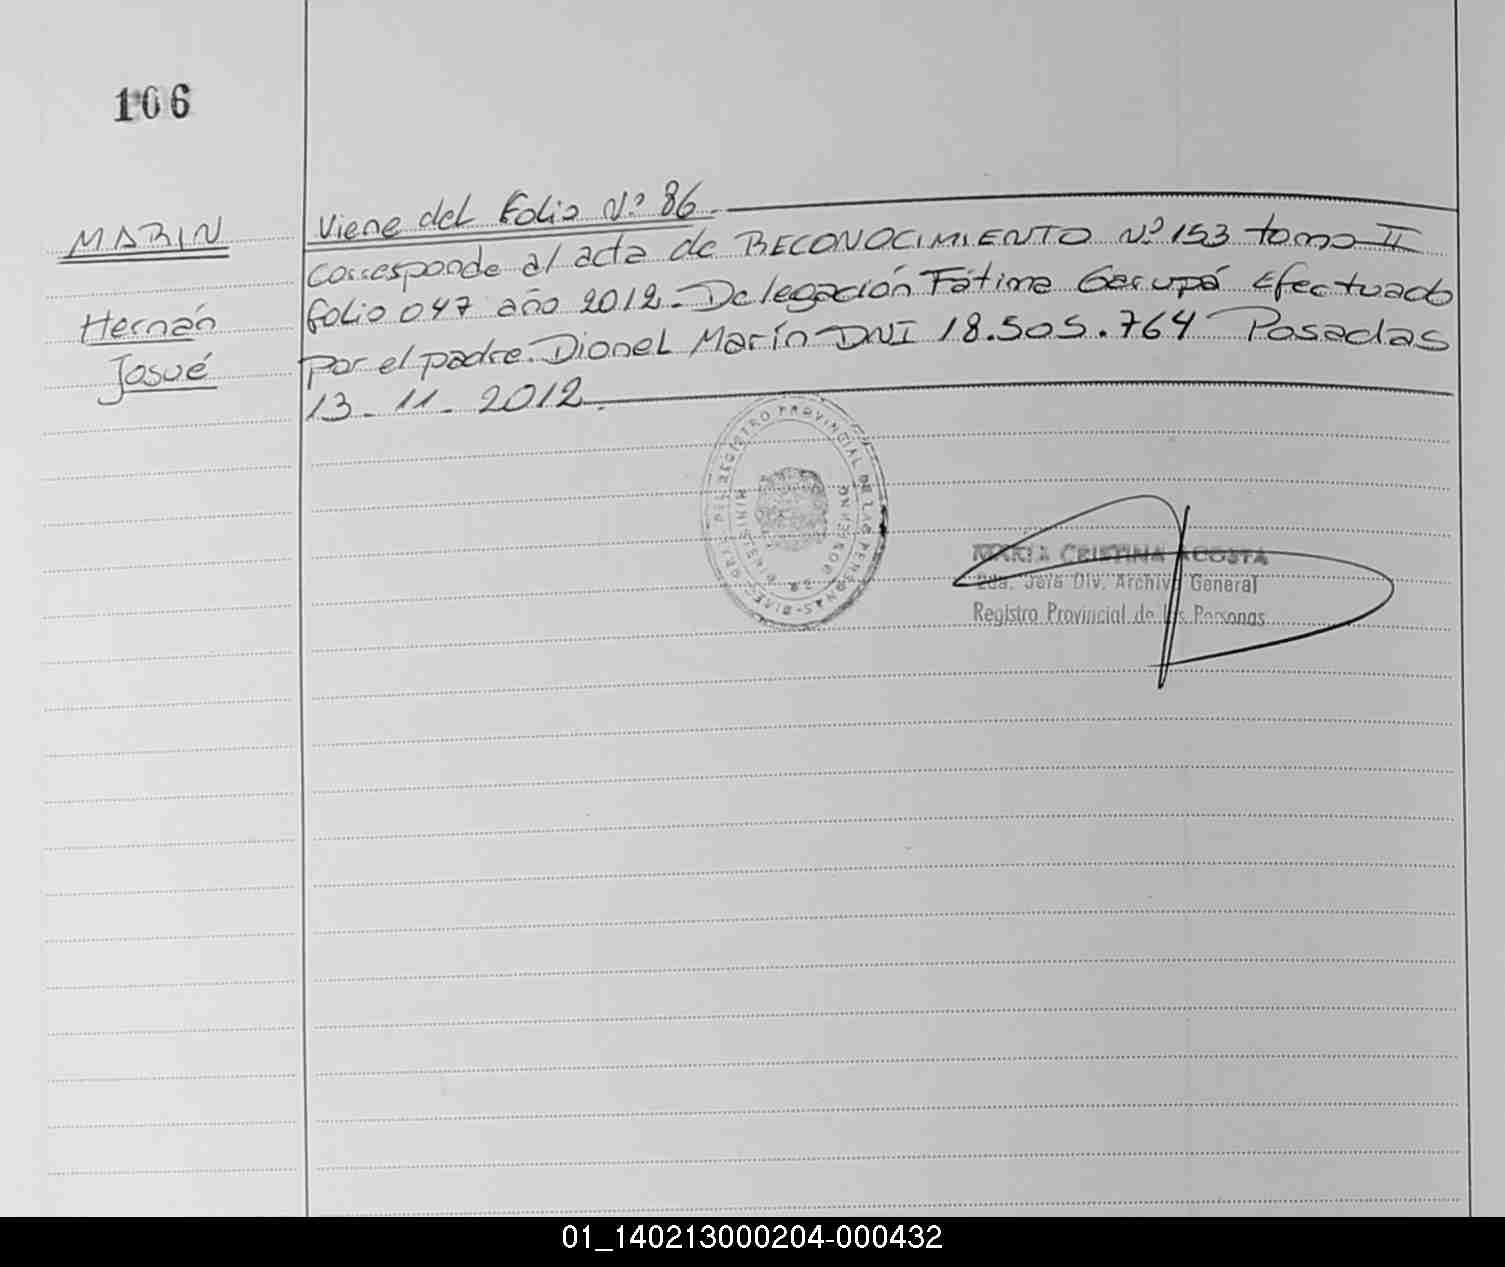 106
MARIN
Hernán
Josué
Viene del Folio Nº 86.
Corresponde al acta de RECONOCIMIENTO Nº 153 tomo II
folio 047 año 2012. Delegación Fátima Garupá Efectuado
por el padre. Dionel Marín DNI 18.505.764 Posadas
13 - 11 - 2012.
REGISTRO PROVINCIAL DE LAS PERSONAS
MARIA CRISTINA ACOSTA
2da. Jefa Div. Archivo General
Registro Provincial de las Personas
01_140213000204-000432